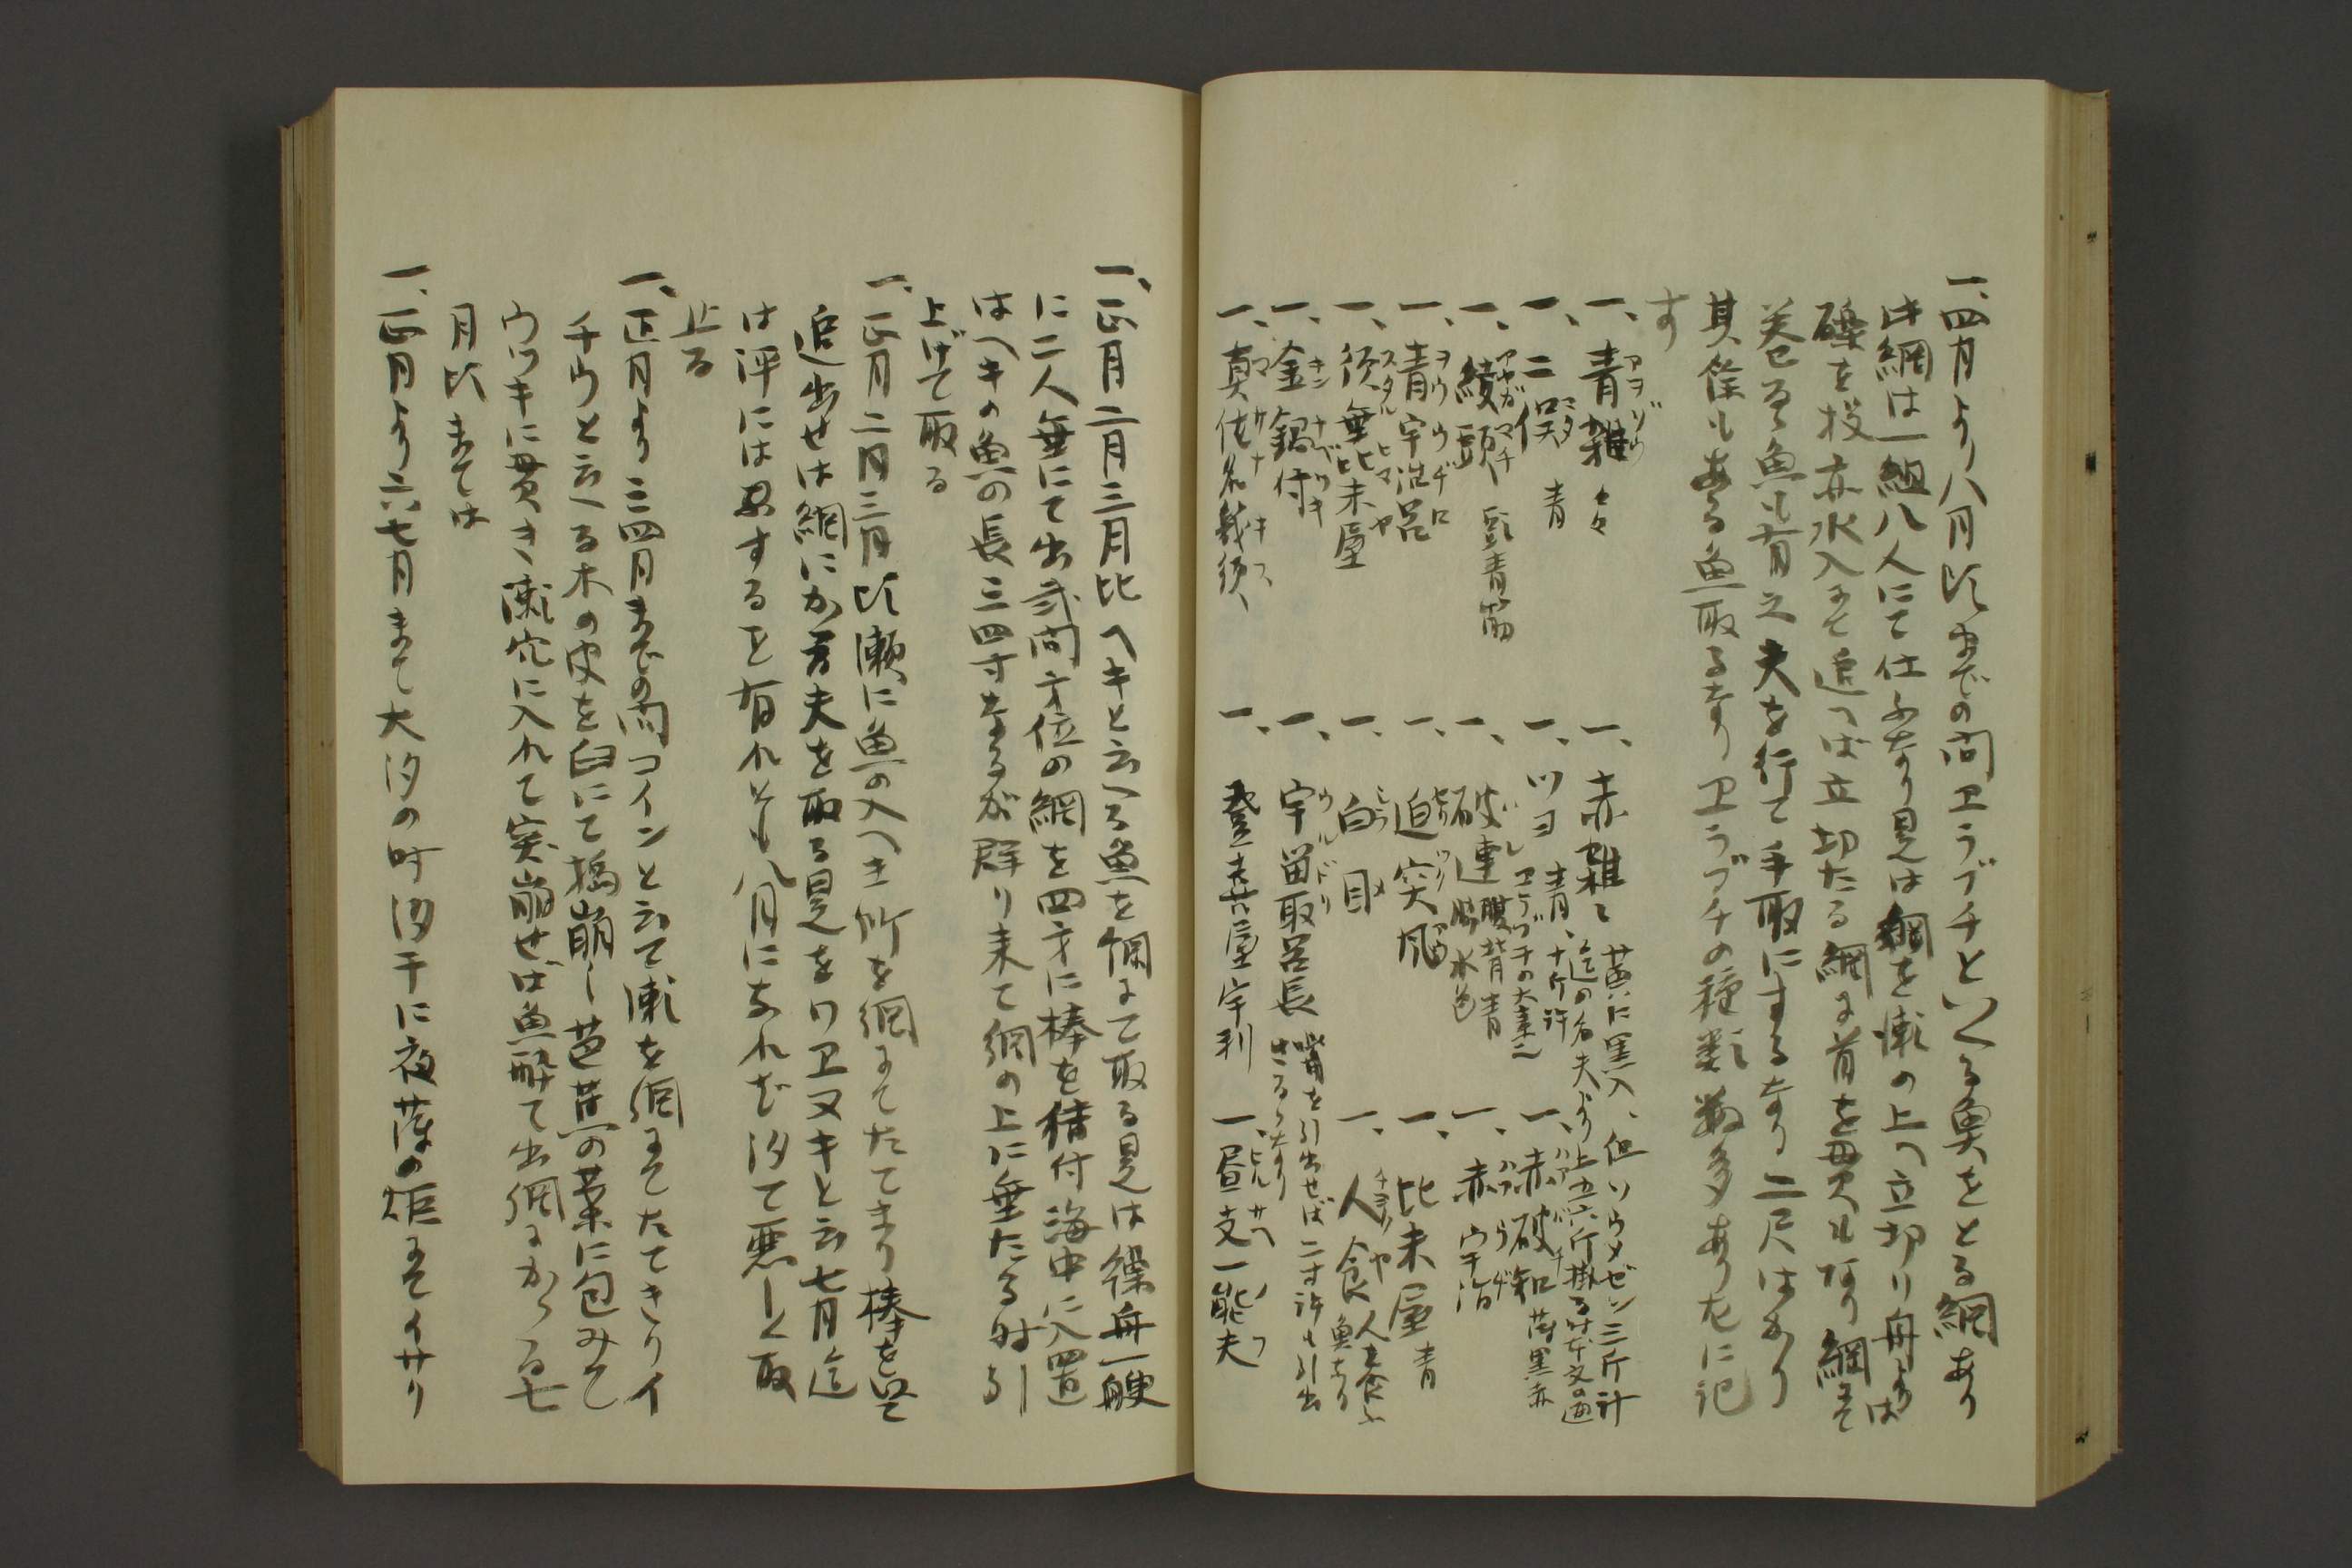 一、四月より八月比までの間ヱラブチといへる魚をとる網あり
此網は一組八人にて仕ふなり是は網を瀬の上へ立切り舟よりは
礫を投亦水入にて追つは立切たる網に首を貫くも有り網にて
巻せる魚も有之夫を行て手取にするなり二尺はかり
其餘もある魚取るなりヱラブチの種類数多あり左に記
す
一、青雑 アヲゾウ 々々
一、赤雑々 黄に黒入、但ソウメゼン三斤計
迄の名夫より上五六斤掛る
一、二俣 ミタ 青
一、ツヨ 青、十斤許
ヱラブチの大キ
一、赤破知 黄黒赤
一、綾頭 アヤガマチ 頭青筋
一、破連 バレ 腹背青
脇水色
一、赤宇治
一、青宇治呂 ヲウウヂロ
一、迫突
一、比未屋 青
一、須無比未屋 スタルヒマヤ
一、白目
一、人食 人を食ふ
魚なり
一、金鍋付 キンナベツキ
一、宇留取呂長 嘴を引出せば二寸許も引出
さるゝなり
一、真佐名幾須 マサナキス
一、登喜屋宇利
一、昼支能夫
一、正月二月三月比ヘキと云へる魚を網にて取る是は繰舟一艘
に二人乗にて出弐間方位の網を四方に棒を結付海中に入置
はヘキの魚の長三四寸なるが群り来て網の上に乗たる時引
上げて取る
一、正月二月三月比瀬に魚の入へき所を網にてたてまり棒を以て
追出せは網にかゝる夫を取る是をワヱヌキと云七月迄
は浮には忍するを有れとも八月になれば汐て悪しく取
止る
一、正月より三四月までの間コインと云て瀬を網にてたてきりイ
チウと云へる木の皮を臼にて搗崩し芭蕉の葉に包みて
ウツキに貫き瀬穴に入れて突崩せば魚酔て出網にかゝる七
月比までは
一、正月より六七月まて大汐の時汐干に夜薄の炬にてイサリ